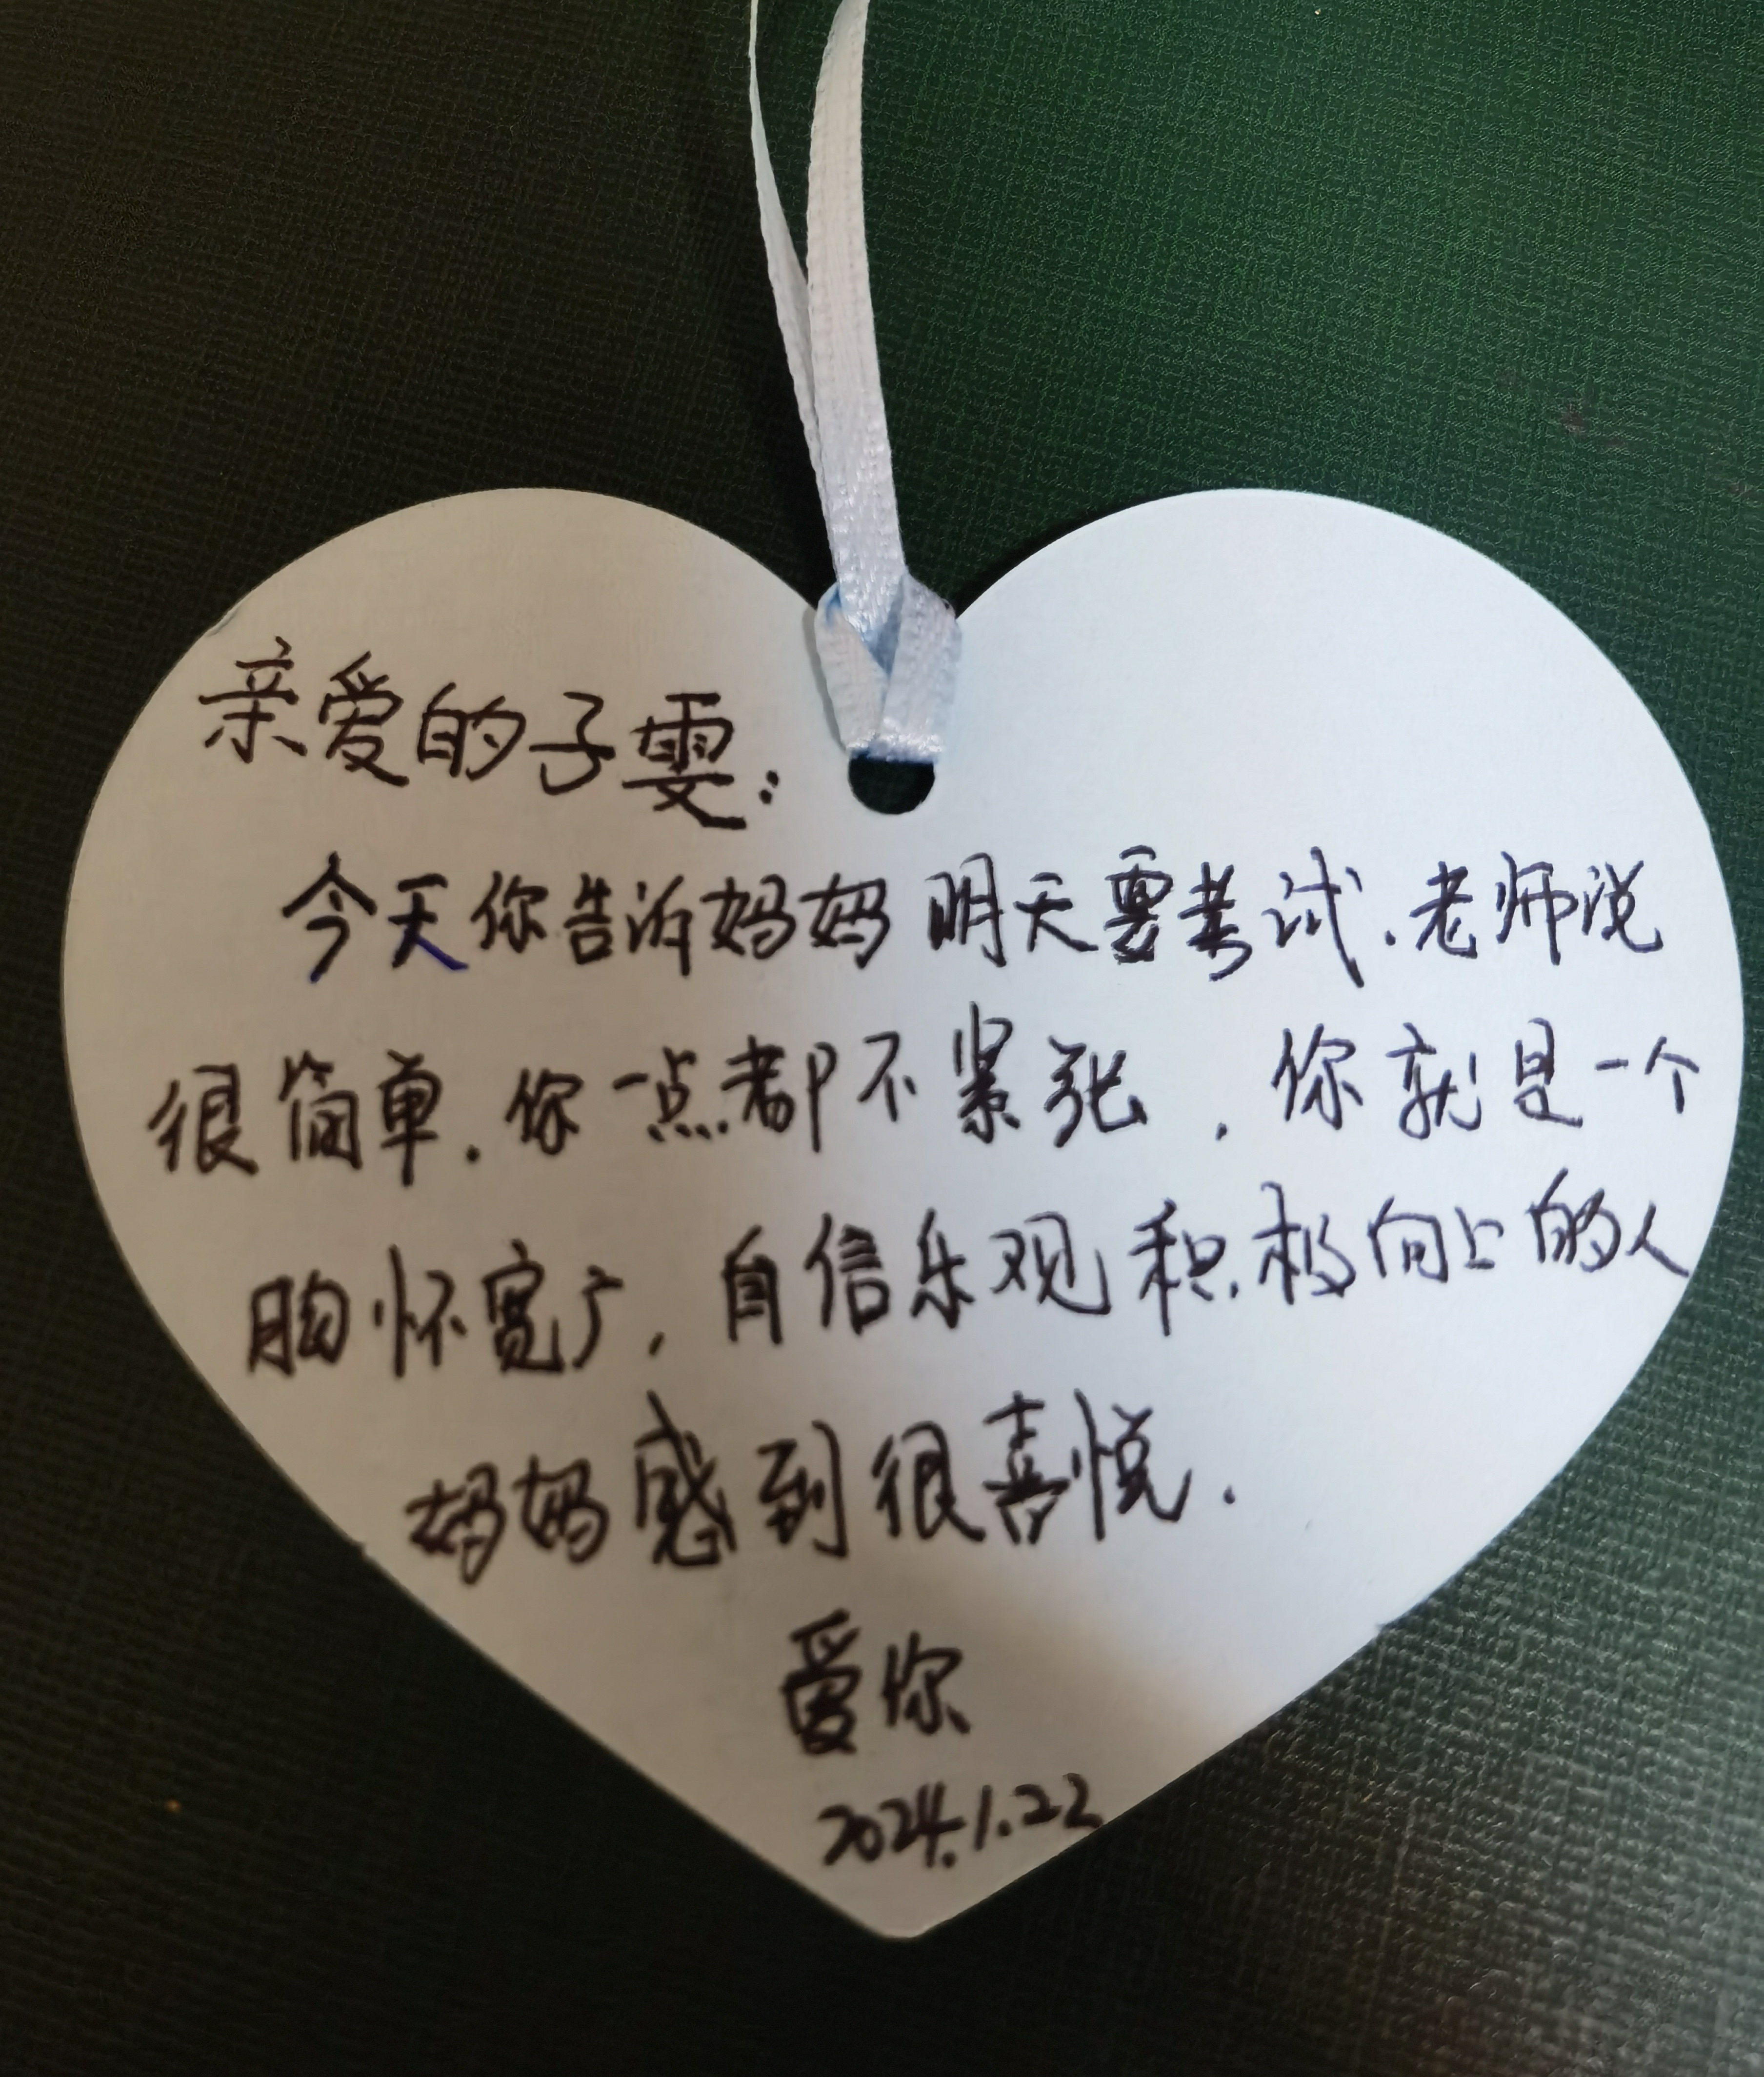 亲爱的子雯：
今天你告诉妈妈明天要考试.老师说
很简单.你一点都不紧张，你就是一个
胸怀宽广，自信乐观积极向上的人
妈妈感到很喜悦.
爱你
2024.1.22